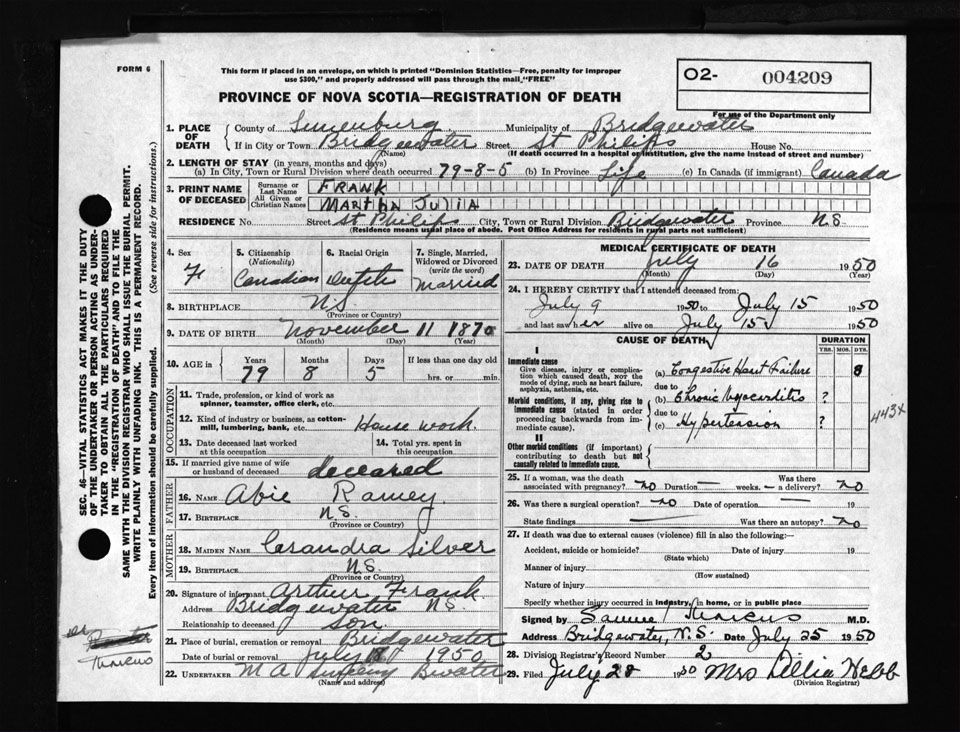 FORM 6
This form if placed in an envelope, on which is printed "Dominion Statistics—Free, penalty for improper
use $300," and properly addressed will pass through the mail, "FREE"
O2- 004209
For use of the Department only
PROVINCE OF NOVA SCOTIA—REGISTRATION OF DEATH
1. PLACE OF DEATH
County of Lunenburg Municipality of Bridgewater
If in City or Town Bridgewater Street St Philips House No.
(Name) (If death occurred in a hospital or institution, give the name instead of street and number)
2. LENGTH OF STAY (in years, months and days)
(a) In City, Town or Rural Division where death occurred 79-8-5 (b) In Province Life (c) In Canada (if immigrant) Canada
3. PRINT NAME OF DECEASED
Surname or Last Name FRANK
All Given or Christian Names MARTHA JULIA
RESIDENCE No. Street St Philips City, Town or Rural Division Bridgewater Province N.S.
(Residence means usual place of abode. Post Office Address for residents in rural parts not sufficient)
4. Sex
F
5. Citizenship
(Nationality)
Canadian
6. Racial Origin
Dutch
7. Single, Married,
Widowed or Divorced
(write the word)
Married
8. BIRTHPLACE N.S.
(Province or Country)
9. DATE OF BIRTH November 11 1870
(Month) (Day) (Year)
10. AGE in
Years Months Days If less than one day old
79 8 5 hrs. or min.
OCCUPATION
11. Trade, profession, or kind of work as
spinner, teamster, office clerk, etc.
12. Kind of industry or business, as cotton-
mill, lumbering, bank, etc.
House work.
13. Date deceased last worked
at this occupation
14. Total yrs. spent in
this occupation
15. If married give name of wife
or husband of deceased deceased
FATHER
16. NAME Abie Ramey
17. BIRTHPLACE N.S.
(Province or Country)
MOTHER
18. MAIDEN NAME Casandra Silver
19. BIRTHPLACE N.S.
(Province or Country)
20. Signature of informant Arthur Frank
Address Bridgewater N.S.
Relationship to deceased son
21. Place of burial, cremation or removal Bridgewater
Date of burial or removal July 18 1950
22. UNDERTAKER M A Bwater
(Name and address)
MEDICAL CERTIFICATE OF DEATH
23. DATE OF DEATH July 16 1950
(Month) (Day) (Year)
24. I HEREBY CERTIFY that I attended deceased from:
July 9 1950 to July 15 1950
and last saw her alive on July 15 1950
CAUSE OF DEATH
DURATION
YRS. MOS. DYS.
I
Immediate cause
Give disease, injury or complica-
tion which caused death, not the
mode of dying, such as heart failure,
asphyxia, asthenia, etc.
(a) Congestive Heart Failure 8
due to
Morbid conditions, if any, giving rise to
immediate cause (stated in order
proceeding backwards from im-
mediate cause).
(b) Chronic Myocarditis ?
due to
(c) Hypertension ?
443x
II
Other morbid conditions (if important)
contributing to death but not
causally related to immediate cause.
25. If a woman, was the death
associated with pregnancy? no Duration — weeks. — a delivery? no
26. Was there a surgical operation? no Date of operation 19
State findings — Was there an autopsy? no
27. If death was due to external causes (violence) fill in also the following:—
Accident, suicide or homicide? Date of injury 19
(State which)
Manner of injury
(How sustained)
Nature of injury
Specify whether injury occurred in industry, in home, or in public place
Signed by Samuel Marcus M.D.
Address Bridgewater, N.S. Date July 25 1950
28. Division Registrar's Record Number 2
29. Filed July 28 1950 Mrs Lillia Webb
(Division Registrar)
SEC. 46—VITAL STATISTICS ACT MAKES IT THE DUTY
OF THE UNDERTAKER OR PERSON ACTING AS UNDER-
TAKER TO OBTAIN ALL THE PARTICULARS REQUIRED
IN THE "REGISTRATION OF DEATH" AND TO FILE THE
SAME WITH THE DIVISION REGISTRAR WHO SHALL ISSUE THE BURIAL PERMIT.
WRITE PLAINLY WITH UNFADING INK. THIS IS A PERMANENT RECORD.
Every item of information should be carefully supplied. (See reverse side for instructions.)
Dr
Marcus